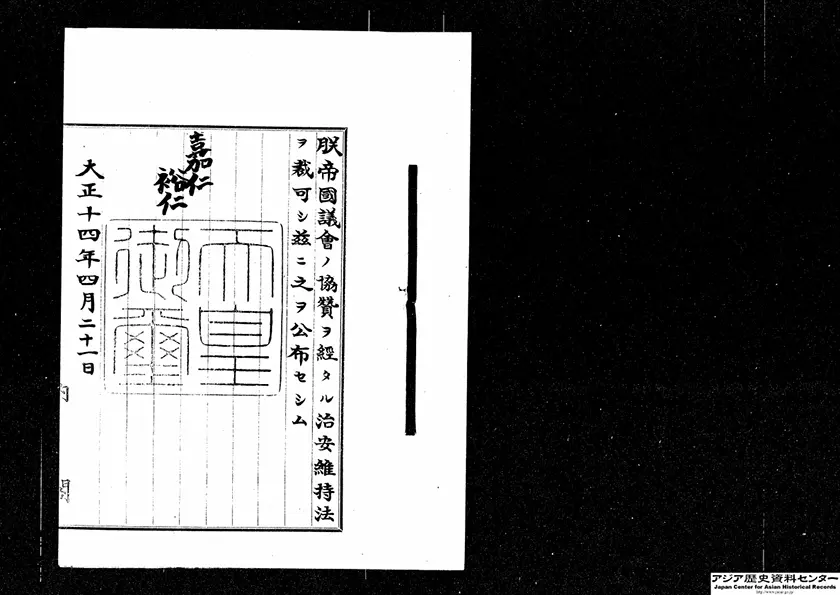 朕帝國議會ノ協贊ヲ經タル治安維持法
ヲ裁可シ茲ニ之ヲ公布セシム
嘉仁
裕仁
天皇
御璽
大正十四年四月二十一日
内閣
アジア歴史資料センター
Japan Center for Asian Historical Records
http://www.jacar.go.jp/